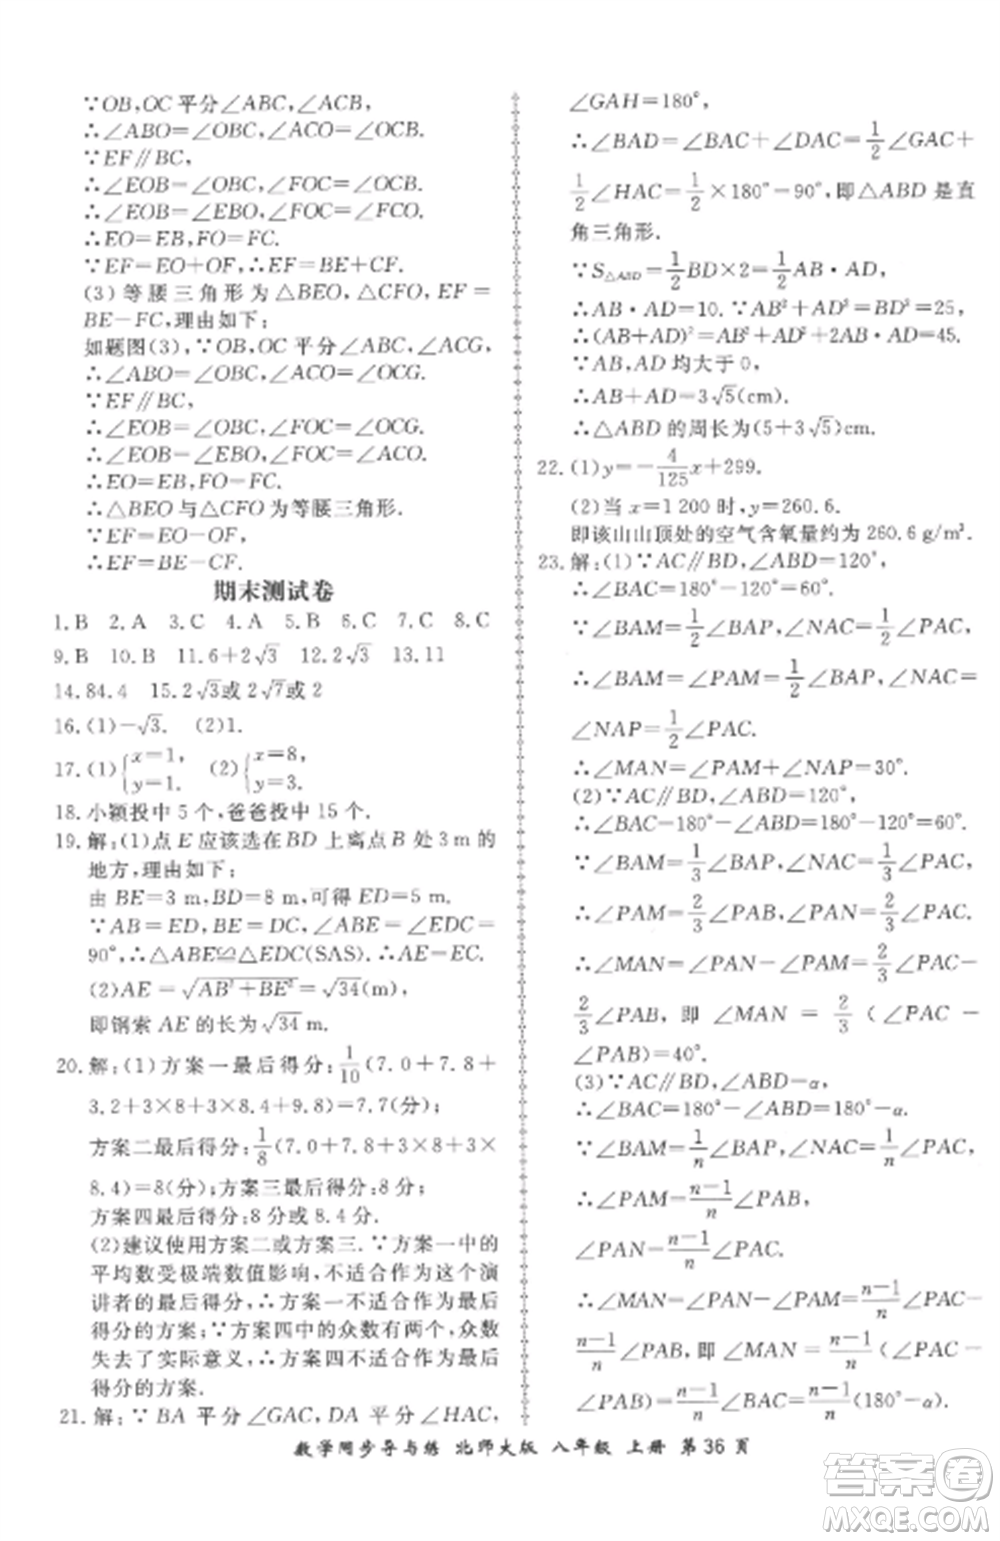 ∵OB,OC平分∠ABC,∠ACB,
∴∠ABO=∠OBC,∠ACO=∠OCB.
∵EF∥BC,
∴∠EOB=∠OBC,∠FOC=∠OCB.
∴∠EOB=∠EBO,∠FOC=∠FCO.
∴EO=EB,FO=FC.
∵EF=EO+OF,∴EF=BE+CF.
(3)等腰三角形为△BEO,△CFO,EF=
BE-FC,理由如下:
如题图(3),∵OB,OC平分∠ABC,∠ACG,
∴∠ABO=∠OBC,∠ACO=∠OCG.
∵EF∥BC,
∴∠EOB=∠OBC,∠FOC=∠OCG.
∴∠EOB=∠EBO,∠FOC=∠FCO.
∴EO=EB,FO=FC.
∴△BEO与△CFO为等腰三角形.
∵EF=EO-OF,
∴EF=BE-FC.
期末测试卷
1.B 2.A 3.C 4.A 5.B 6.C 7.C 8.C
9.B 10.B 11.6+2√3 12.2√3 13.11
14.84.4 15.2√3或2√7或2
16.(1)-√3. (2)1.
17.(1){x=1, y=1. (2){x=8, y=3.
18.小颖投中5个,爸爸投中15个.
19.解:(1)点E应该选在BD上离点B处3 m的
地方,理由如下:
由BE=3 m,BD=8 m,可得ED=5 m.
∵AB=ED,BE=DC,∠ABE=∠EDC=
90°,∴△ABE≌△EDC(SAS).∴AE=EC.
(2)AE=√(AB²+BE²)=√34(m),
即钢索AE的长为√34 m.
20.解:(1)方案一最后得分:1/10(7.0+7.8+
3.2+3×8+3×8.4+9.8)=7.7(分),
方案二最后得分:1/8(7.0+7.8+3×8+3×
8.4)=8(分);方案三最后得分:8分;
方案四最后得分:8分或8.4分.
(2)建议使用方案二或方案三.∵方案一中的
平均数受极端数值影响,不适合作为这个演
讲者的最后得分,∴方案一不适合作为最后
得分的方案;∵方案四中的众数有两个,众数
失去了实际意义,∴方案四不适合作为最后
得分的方案.
21.解:∵BA平分∠GAC,DA平分∠HAC,
∠GAH=180°,
∴∠BAD=∠BAC+∠DAC=1/2∠GAC+
1/2∠HAC=1/2×180°=90°,即△ABD是直
角三角形.
∵S△ABD=1/2BD×2=1/2AB·AD,
∴AB·AD=10.∵AB²+AD²=BD²=25,
∴(AB+AD)²=AB²+AD²+2AB·AD=45.
∵AB,AD均大于0,
∴AB+AD=3√5(cm).
∴△ABD的周长为(5+3√5)cm.
22.(1)y=-4/125x+299.
(2)当x=1 200时,y=260.6.
即该山山顶处的空气含氧量约为260.6 g/m³.
23.解:(1)∵AC∥BD,∠ABD=120°,
∴∠BAC=180°-120°=60°.
∵∠BAM=1/2∠BAP,∠NAC=1/2∠PAC,
∴∠BAM=∠PAM=1/2∠BAP,∠NAC=
∠NAP=1/2∠PAC.
∴∠MAN=∠PAM+∠NAP=30°.
(2)∵AC∥BD,∠ABD=120°,
∴∠BAC=180°-∠ABD=180°-120°=60°.
∵∠BAM=1/3∠BAP,∠NAC=1/3∠PAC,
∴∠PAM=2/3∠BAP,∠PAN=2/3∠PAC.
∴∠MAN=∠PAN-∠PAM=2/3∠PAC-
2/3∠PAB,即∠MAN=2/3(∠PAC-
∠PAB)=40°.
(3)∵AC∥BD,∠ABD=α,
∴∠BAC=180°-∠ABD=180°-α.
∵∠BAM=1/n∠BAP,∠NAC=1/n∠PAC,
∴∠PAM=(n-1)/n∠PAB,
∠PAN=(n-1)/n∠PAC.
∴∠MAN=∠PAN-∠PAM=(n-1)/n∠PAC-
(n-1)/n∠PAB,即∠MAN=(n-1)/n(∠PAC-
∠PAB)=(n-1)/n∠BAC=(n-1)/n(180°-α).
数学同步导与练 北师大版 八年级 上册 第36页
答案圈
MXQE.COM